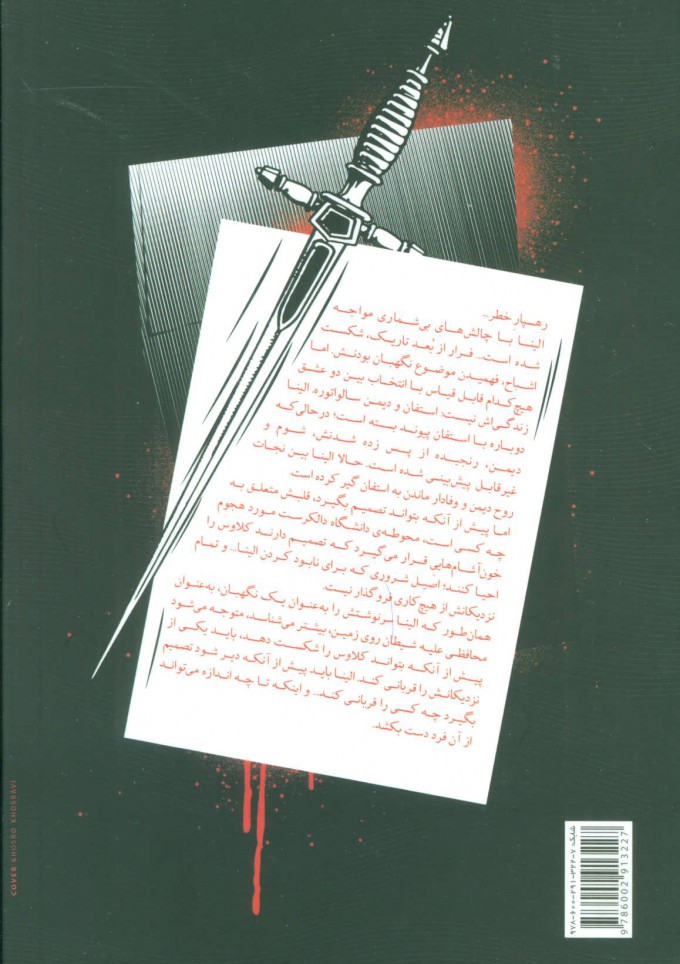 رهسپار خطر...
الینا با چالش‌های بی‌شماری مواجه
شده است... فرار از بُعد تاریک، شکست
اشباح، فهمیدن موضوع نگهبان بودنش. اما
هیچ‌کدام قابل قیاس با انتخاب بین دو عشق
زندگی‌اش نیست: استفان و دیمن سالواتوره. الینا
دوباره با استفان پیوند بسته است؛ درحالی‌که
دیمن، رنجیده از پس زده شدنش، شوم و
غیرقابل پیش‌بینی شده است. حالا الینا بین نجات
روح دیمن و وفادار ماندن به استفان گیر کرده است.
اما پیش از آنکه بتواند تصمیم بگیرد، قلبش متعلق به
چه کسی است، محوطه‌ی دانشگاه دالکرست مورد هجوم
خون‌آشام‌هایی قرار می‌گیرد که تصمیم دارند کلاوس را
احیا کنند؛ اصیل شروری که برای نابود کردن الینا... و تمام
نزدیکانش از هیچ کاری فروگذار نیست.
همان‌طور که الینا سرنوشتش را به‌عنوان یک نگهبان، به‌عنوان
محافظی علیه شیطان روی زمین، بیشتر می‌شناسد، متوجه می‌شود
پیش از آنکه بتواند کلاوس را شکست دهد، باید یکی از
نزدیکانش را قربانی کند. الینا باید پیش از آنکه دیر شود تصمیم
بگیرد چه کسی را قربانی کند... و اینکه تا چه اندازه می‌تواند
از آن فرد دست بکشد.
COVER: KHOSRO KHOSRAVI
شابک: ۹۷۸-۶۰۰-۲۹۱-۳۲۲-۷
9 786002 913227